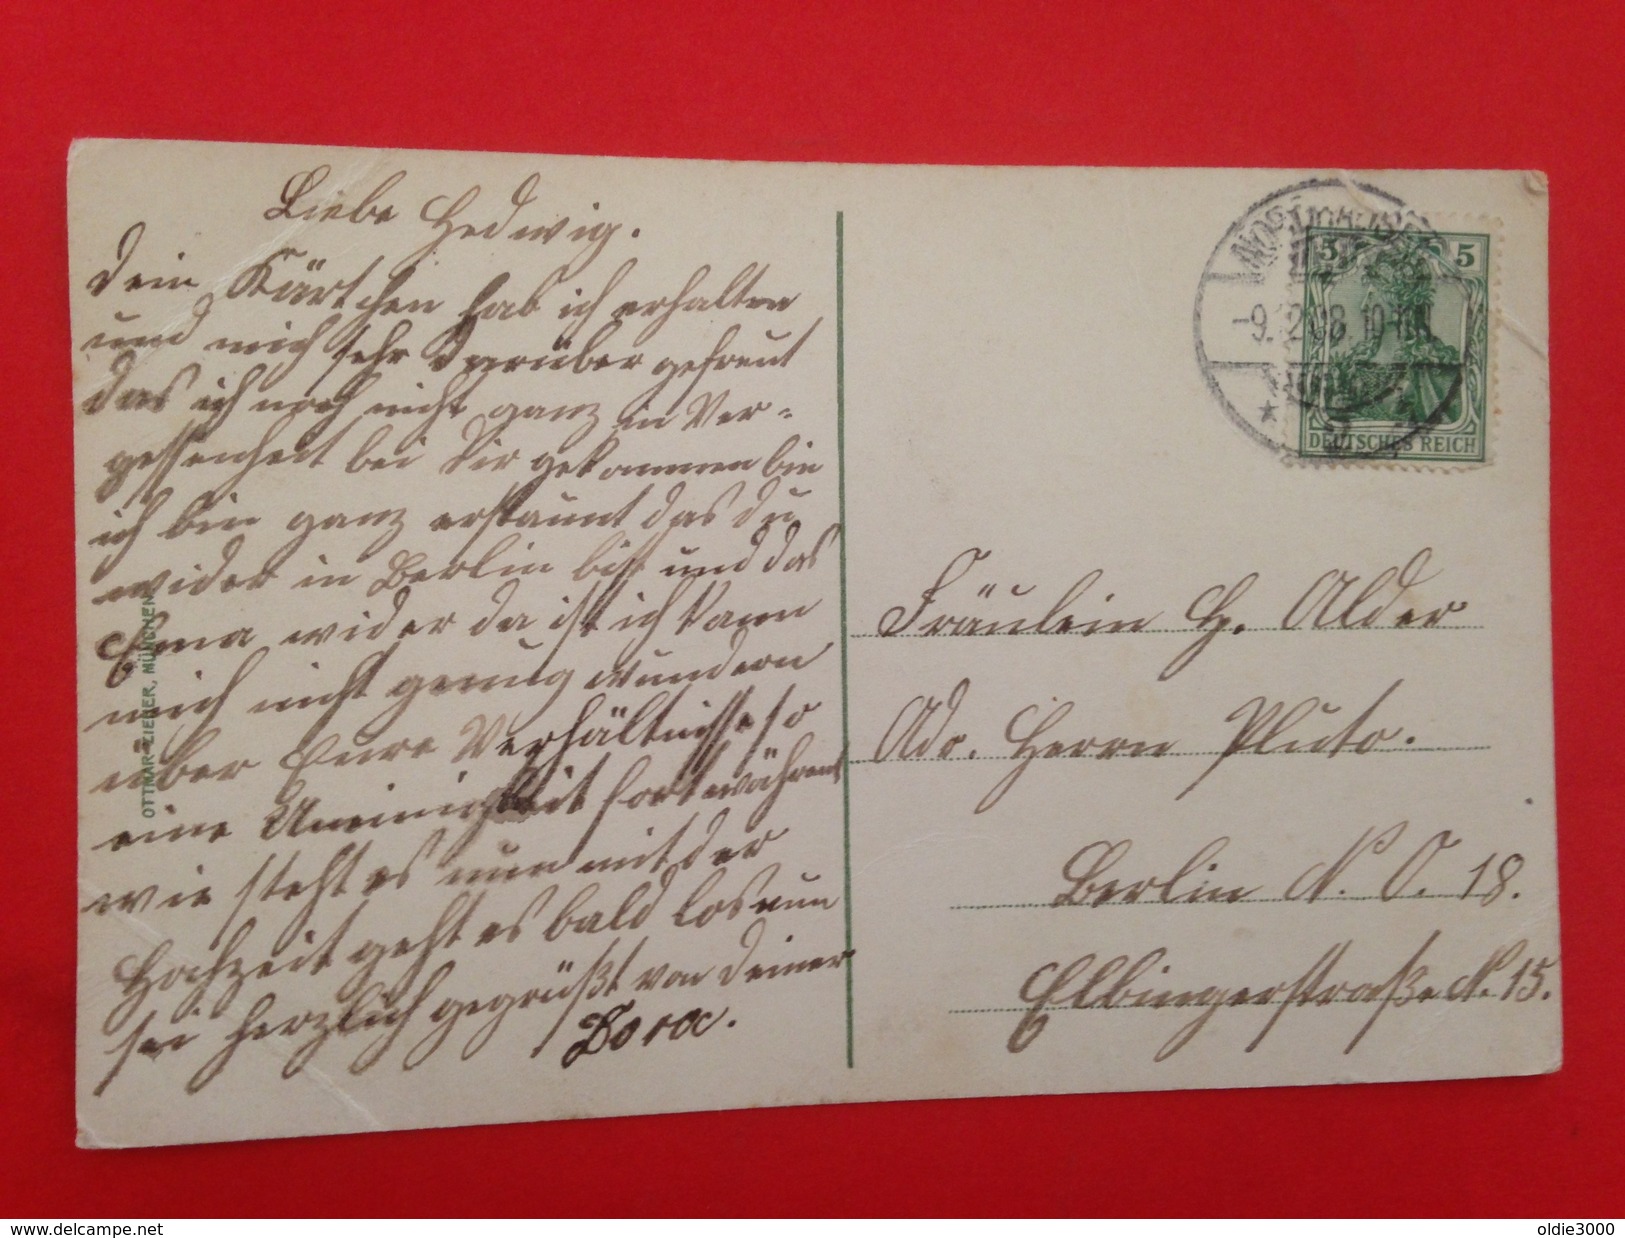 Liebe Hedwig.
Dein Kärtchen hab ich erhalten
und mich sehr darüber gefreut
das ich noch nicht ganz in Ver=
gessenheit bei Dir gekommen bin
ich bin ganz erstaunt das du
wider in Berlin bist und das
Ema wider da ist ich kann
mich nicht genug wundern
über Eure Verhältnisse so
eine Uneinigkeit fortwährent
wie steht es nun mit der
Hochzeit geht es bald los nun
sei herzlich gegrüßt von deiner
Dora.
OTTMAR ZIEHER, MÜNCHEN
-9.12.08.10-11
5 5
DEUTSCHES REICH
Fräulein H. Alder
Adr. Herrn Pluto.
Berlin N. O. 18.
Elbingerstraße N. 15.
oldie-delcampe.net
oldie3000